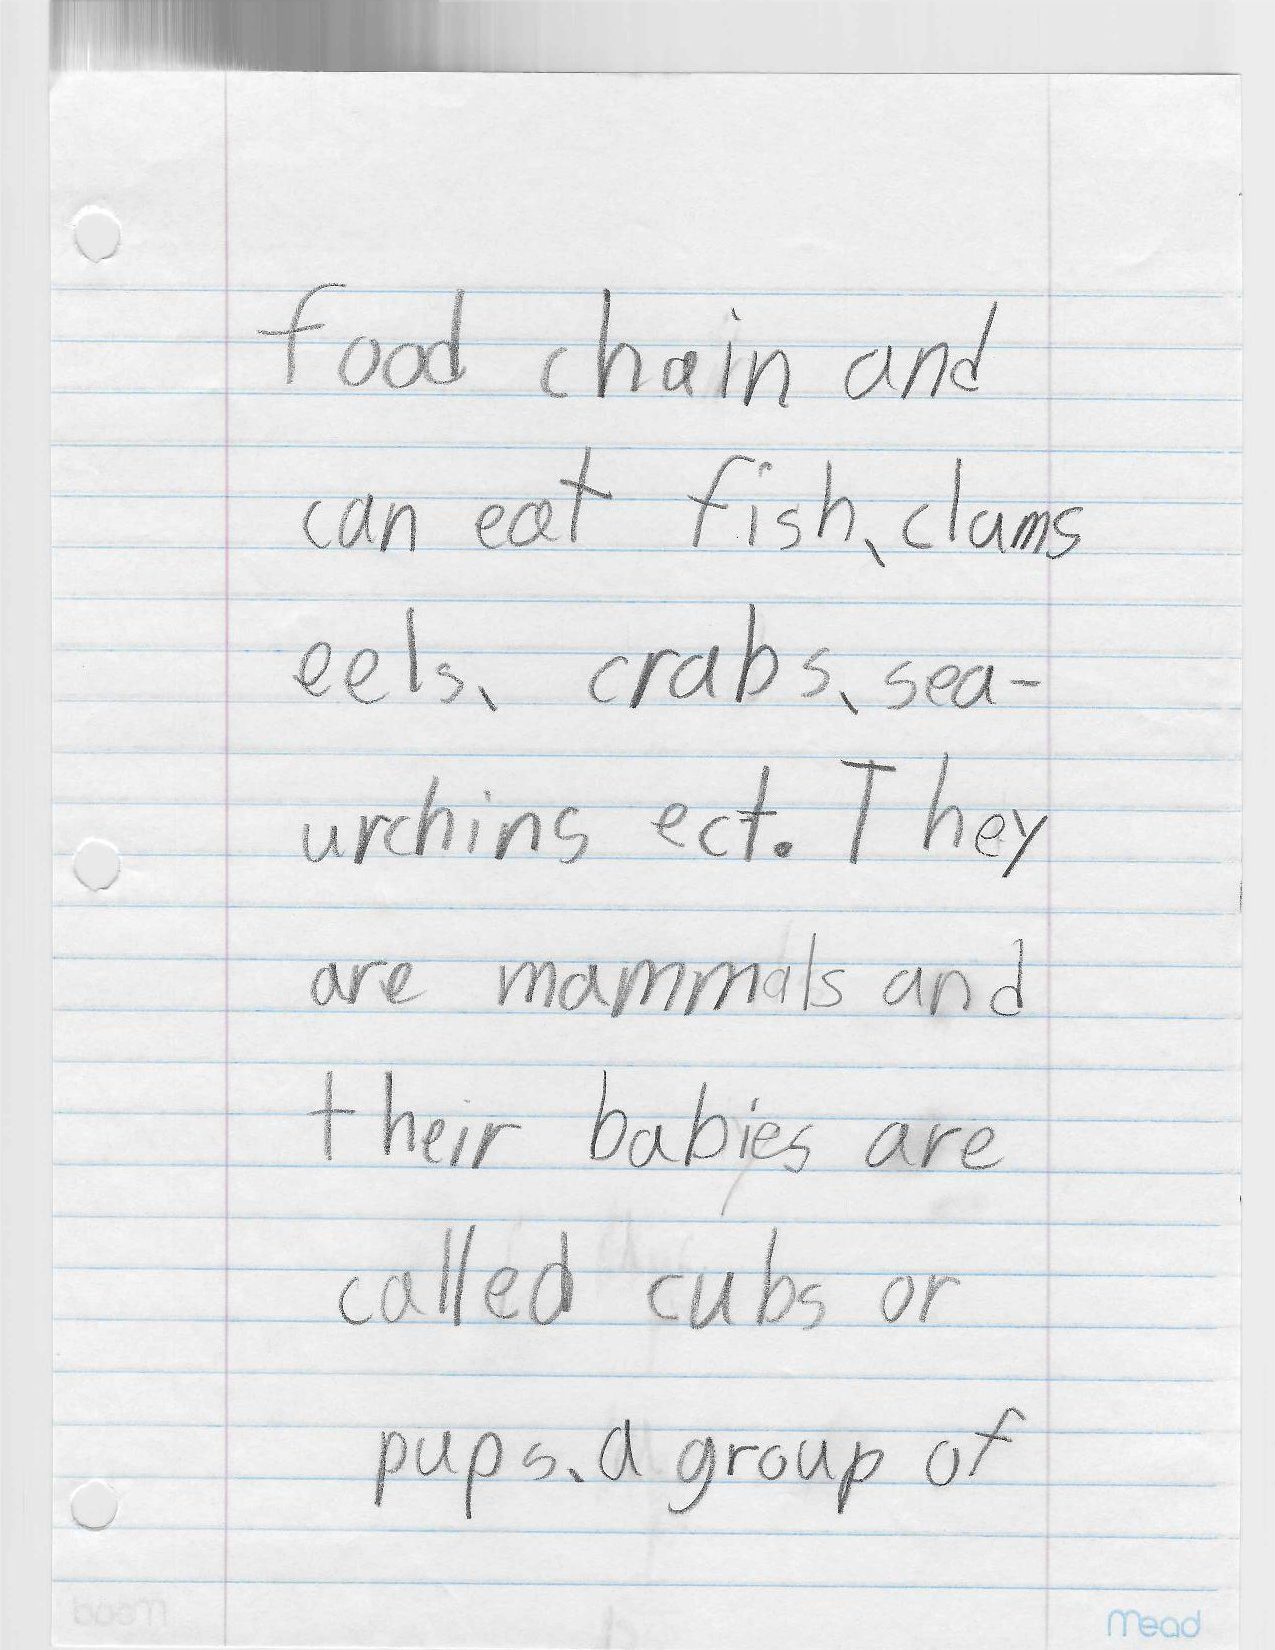 food chain and
can eat fish, clams
eels, crabs, sea-
urchins ect. They
are mammals and
their babies are
called cubs or
pups, a group of
Mead